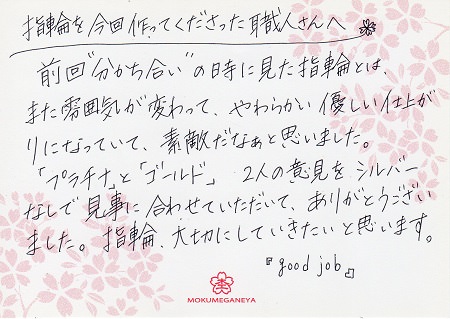 指輪を今回作ってくださった職人さんへ
前回"分かち合い"の時に見た指輪とは、
また雰囲気が変わって、やわらかい優しい仕上が
りになっていて、素敵だなぁと思いました。
「プラチナ」と「ゴールド」 2人の意見をシルバー
なしで見事に合わせていただいて、ありがとうござい
ました。指輪、大切にしていきたいと思います。
『good job』
MOKUMEGANEYA